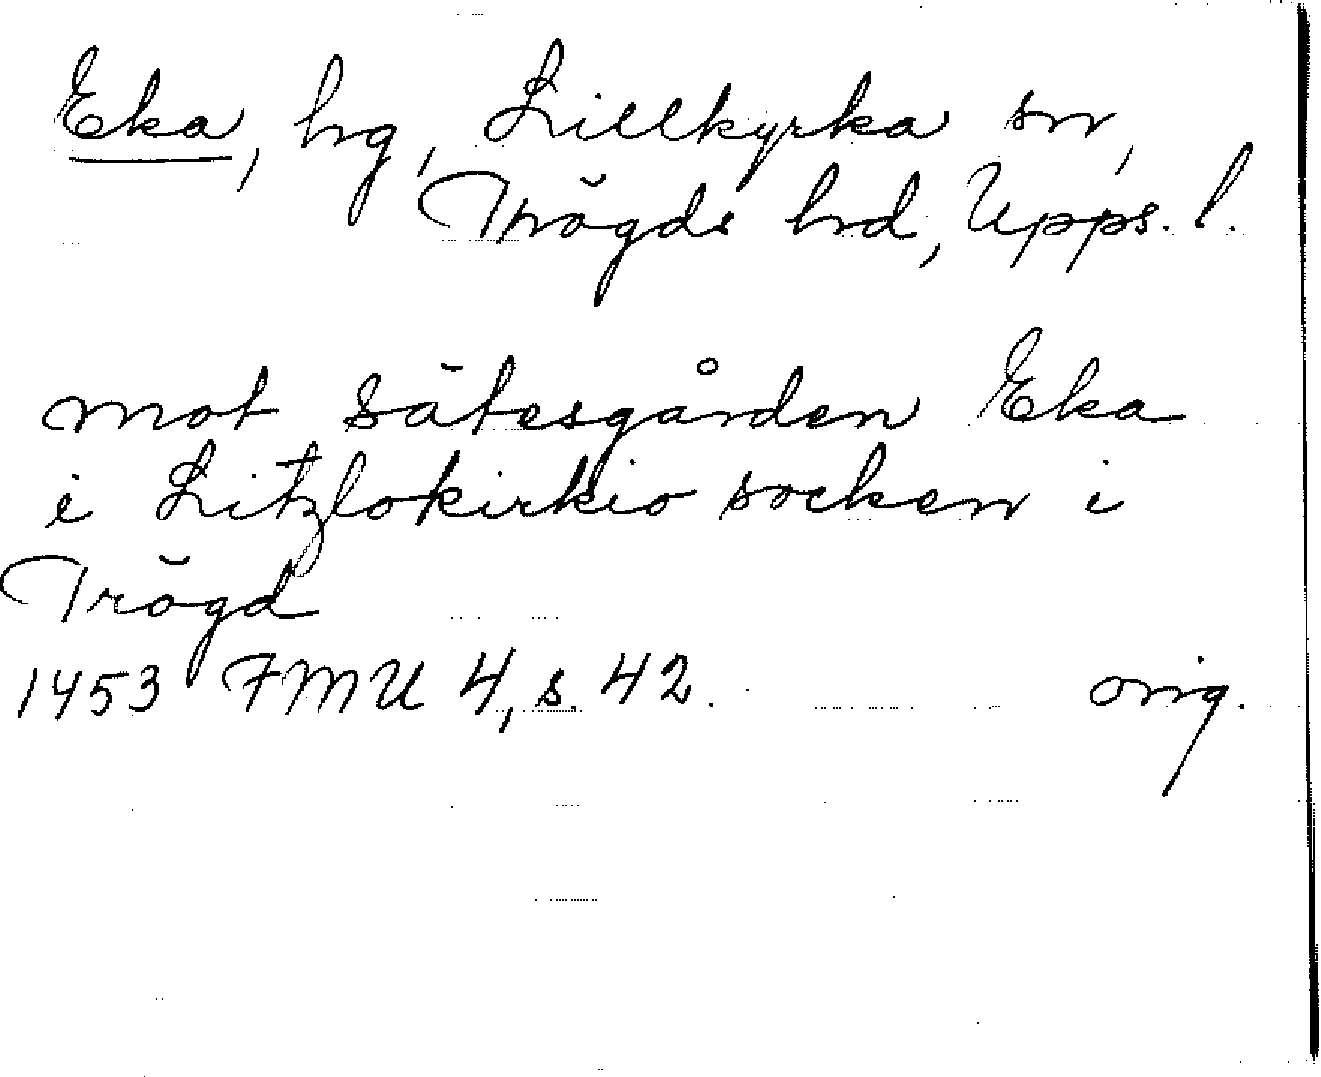 Eka, hg, Lillkyrka sn,
Trögds hd, Upps. l.
mot sätesgården Eka
i Litzlokirkio socken i
Trögd
1453 FMU 4, s. 42. orig.